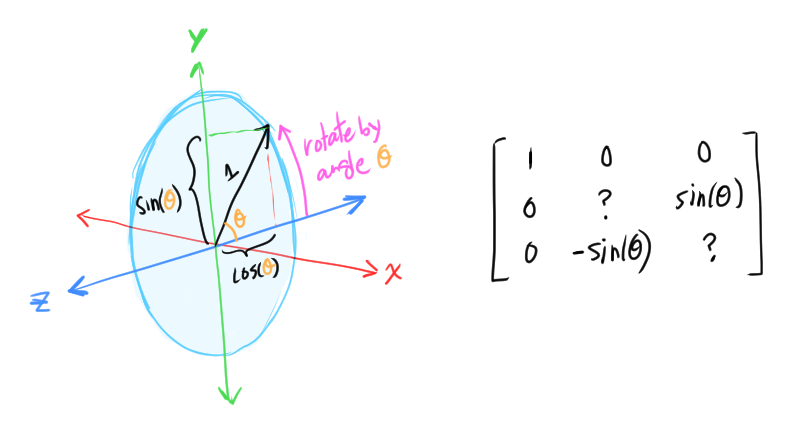 Y
rotate by
angle θ
1
sin(θ)
θ
cos(θ)
X
Z
1 0 0
0 ? sin(θ)
0 -sin(θ) ?